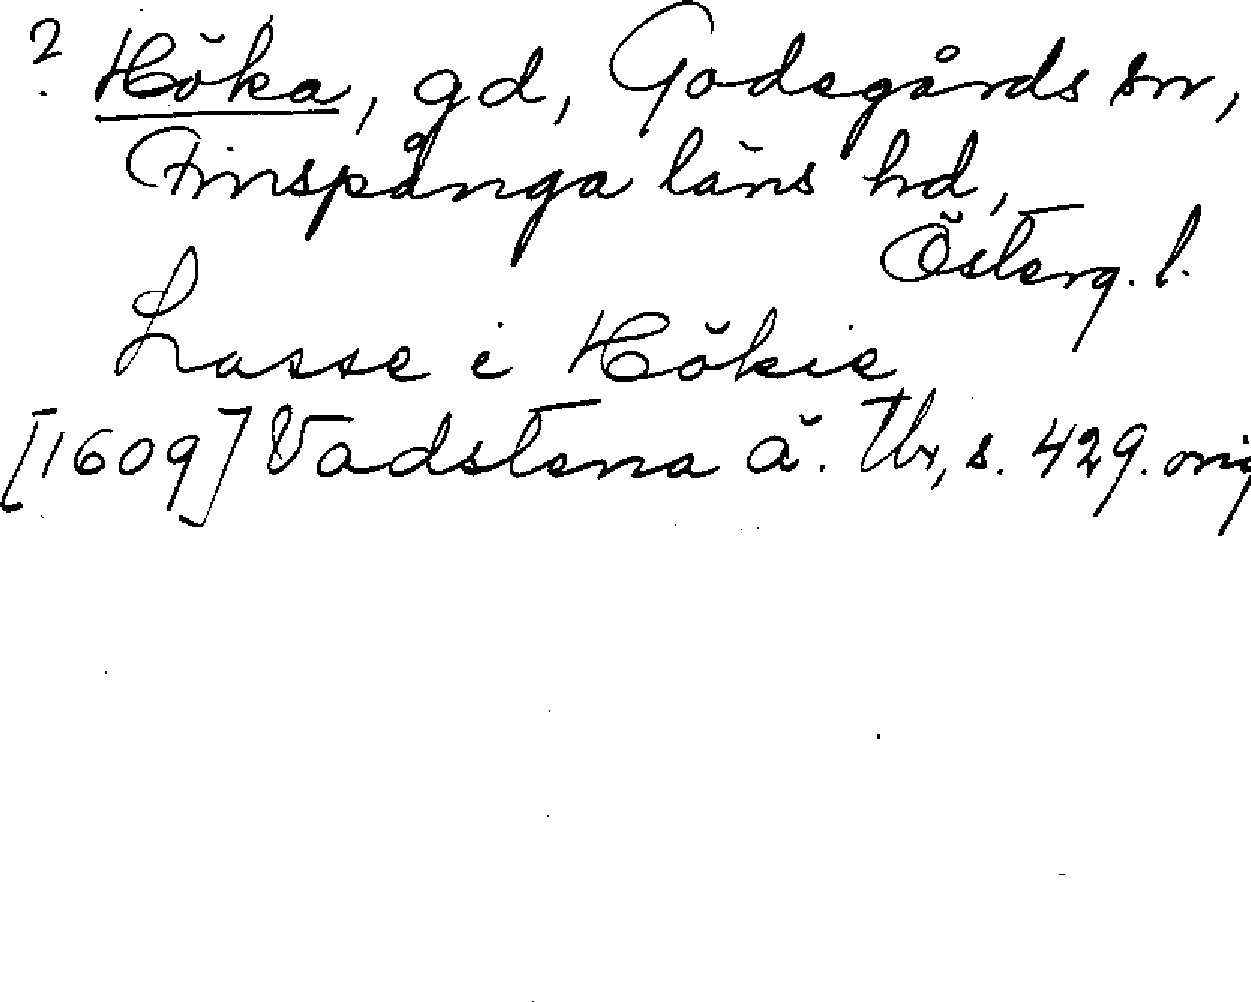 ? Höka, gd, Godegårds sn,
Finspånga läns hd,
Österg. l.
Lasse i Hökie
[1609] Vadstena ä. Tb, s. 429. orig